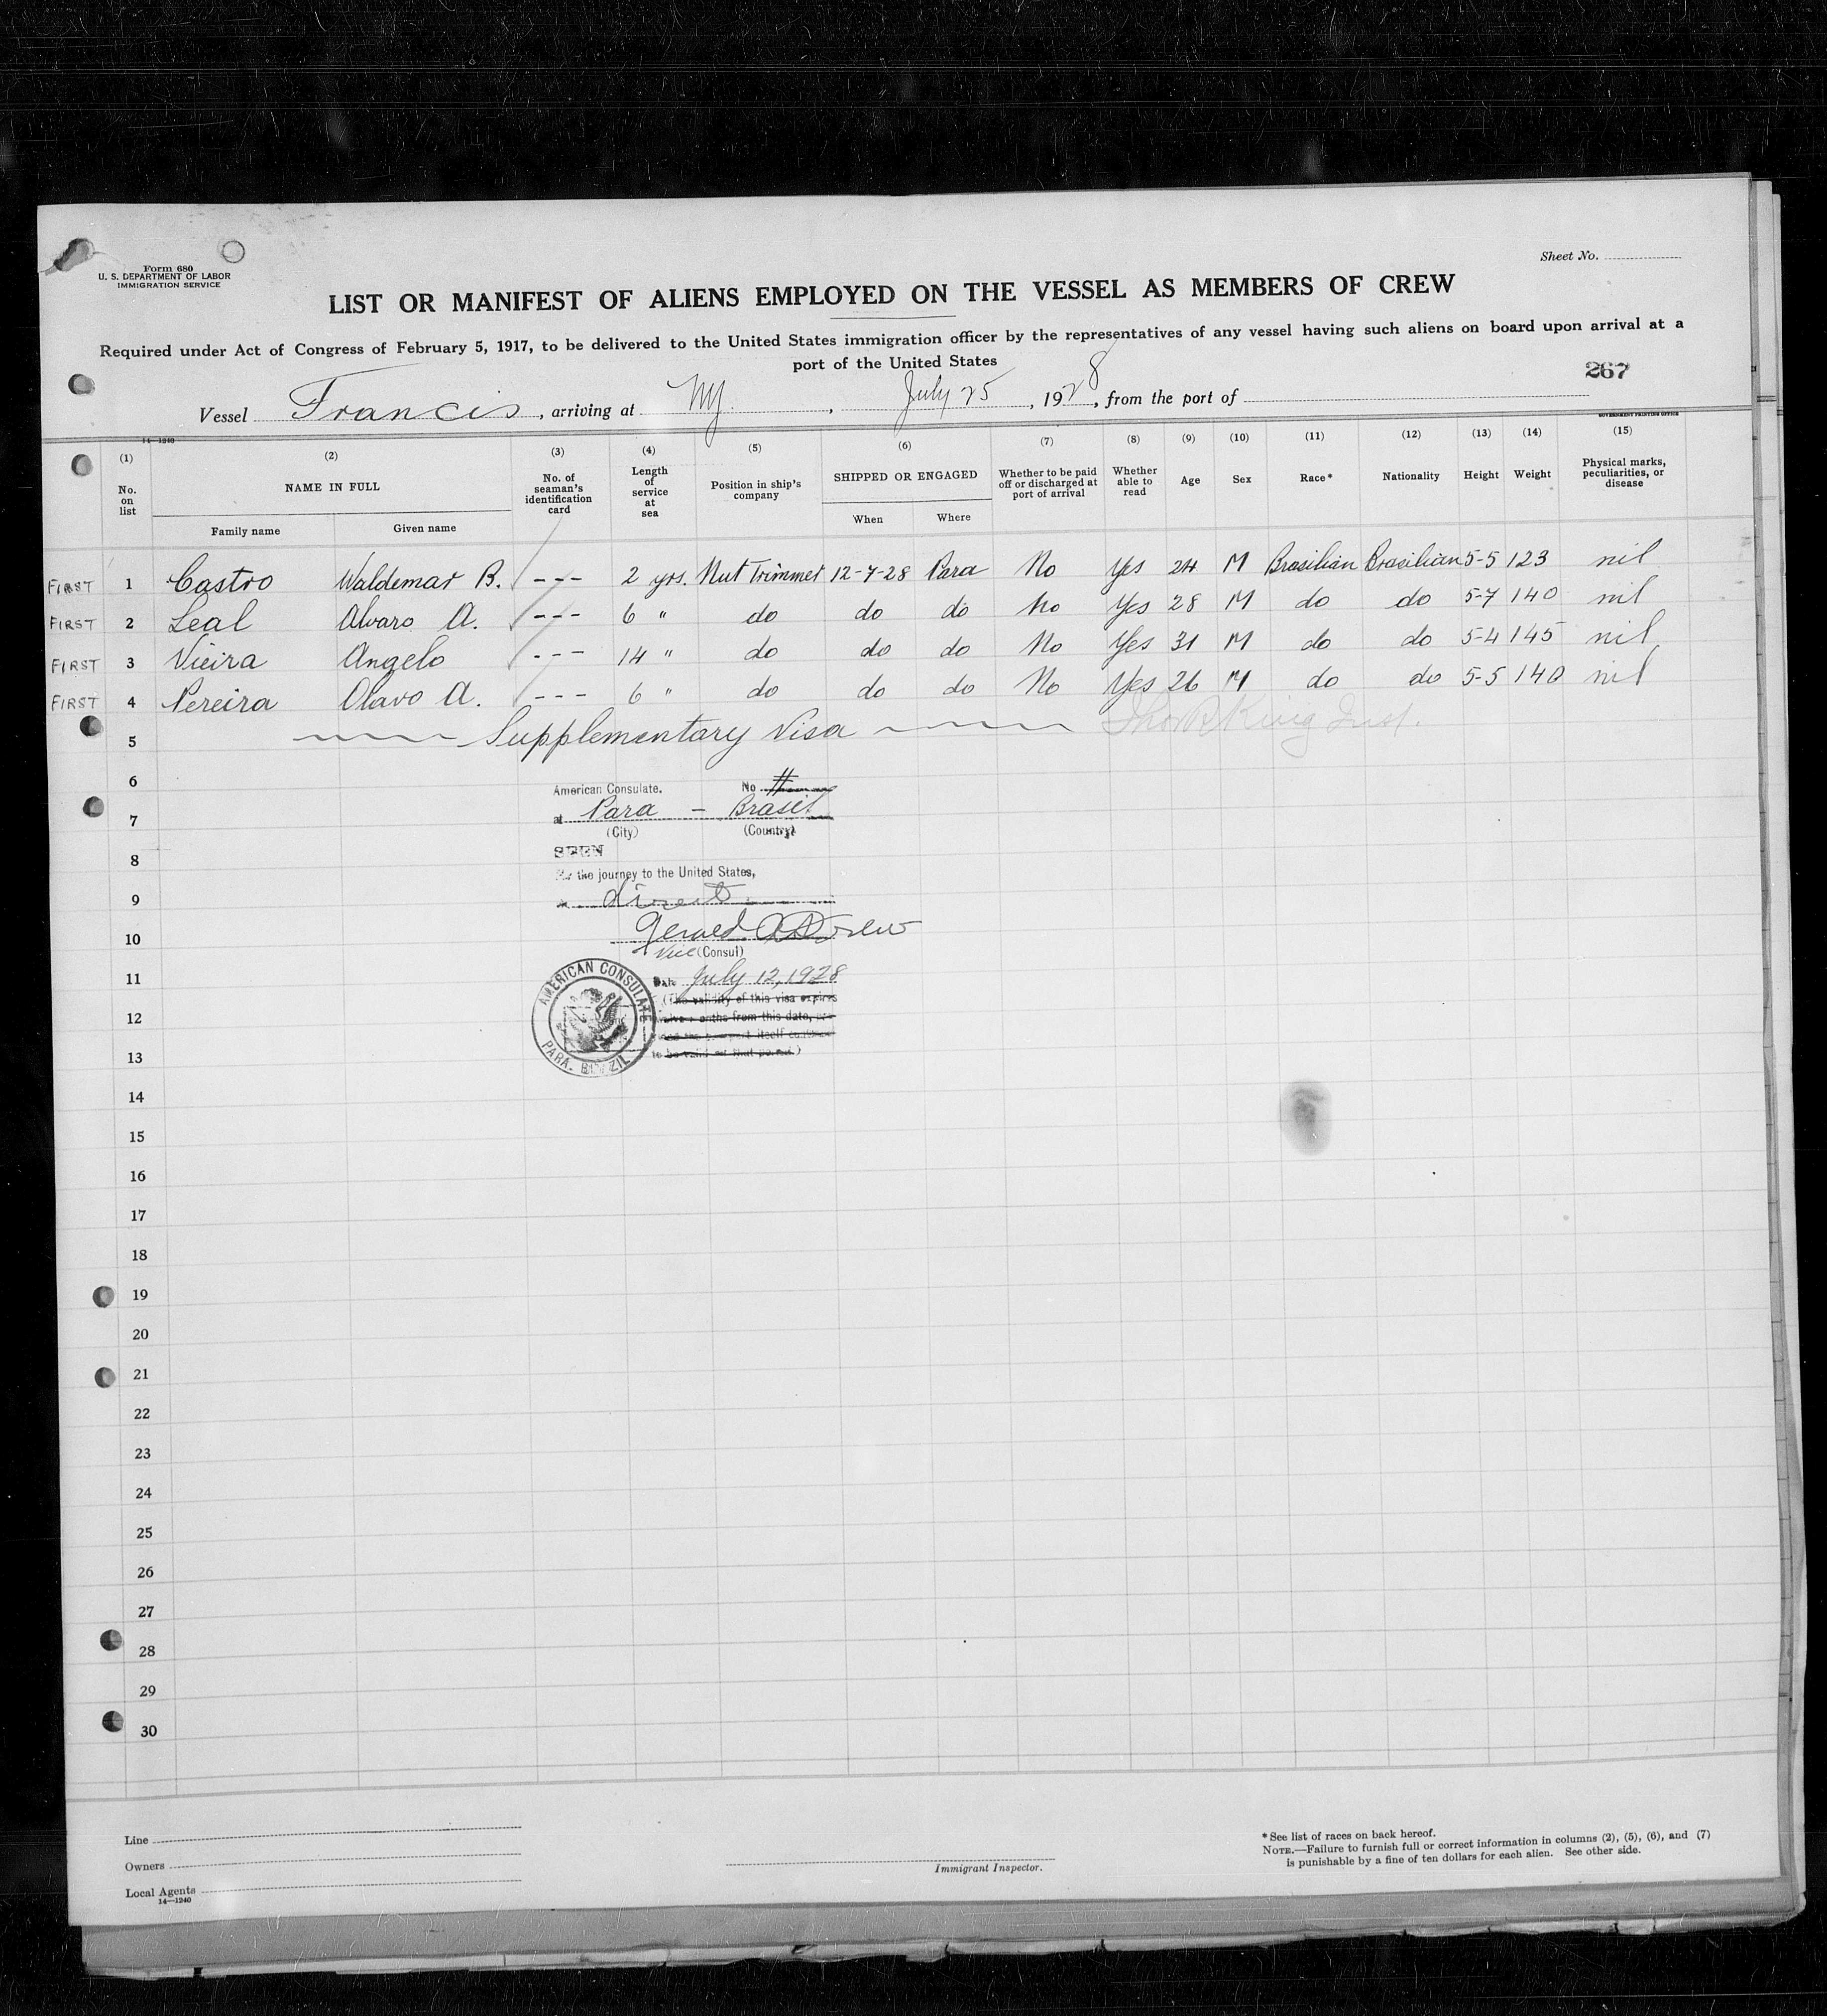 Form 680
U. S. DEPARTMENT OF LABOR
IMMIGRATION SERVICE
Sheet No.
LIST OR MANIFEST OF ALIENS EMPLOYED ON THE VESSEL AS MEMBERS OF CREW
Required under Act of Congress of February 5, 1917, to be delivered to the United States immigration officer by the representatives of any vessel having such aliens on board upon arrival at a
port of the United States
267
Vessel Francis, arriving at NY., July 25, 1928, from the port of
14—1240
GOVERNMENT PRINTING OFFICE
(1) (2) (3) (4) (5) (6) (7) (8) (9) (10) (11) (12) (13) (14) (15)
No. on list
NAME IN FULL
Family name
Given name
No. of seaman's identification card
Length of service at sea
Position in ship's company
SHIPPED OR ENGAGED
When
Where
Whether to be paid off or discharged at port of arrival
Whether able to read
Age
Sex
Race*
Nationality
Height
Weight
Physical marks, peculiarities, or disease
FIRST 1 Castro Waldemar B. --- 2 yrs. Nut Trimmer 12-7-28 Para No Yes 24 M Brasilian Brasilian 5-5 123 nil
FIRST 2 Leal Alvaro A. --- 6 " do do do No Yes 28 M do do 5-7 140 nil
FIRST 3 Vieira Angelo --- 14 " do do do No Yes 31 M do do 5-4 145 nil
FIRST 4 Pereira Olavo A. --- 6 " do do do No Yes 26 M do do 5-5 140 nil
5 Supplementary Visa
6
American Consulate. No
7
at Para - Brasil
(City) (Country)
8
SEEN
the journey to the United States,
9
direct
10
Gerald A Drew
Vice (Consul)
11
Date July 12, 1928
(The validity of this visa expires
12
twelve months from this date,
13
to be valid for that period.)
AMERICAN CONSULATE
PARA. BRAZIL
14
15
16
17
18
19
20
21
22
23
24
25
26
27
28
29
30
Line
Owners
Local Agents
14—1240
Immigrant Inspector.
* See list of races on back hereof.
NOTE.—Failure to furnish full or correct information in columns (2), (5), (6), and (7)
is punishable by a fine of ten dollars for each alien. See other side.